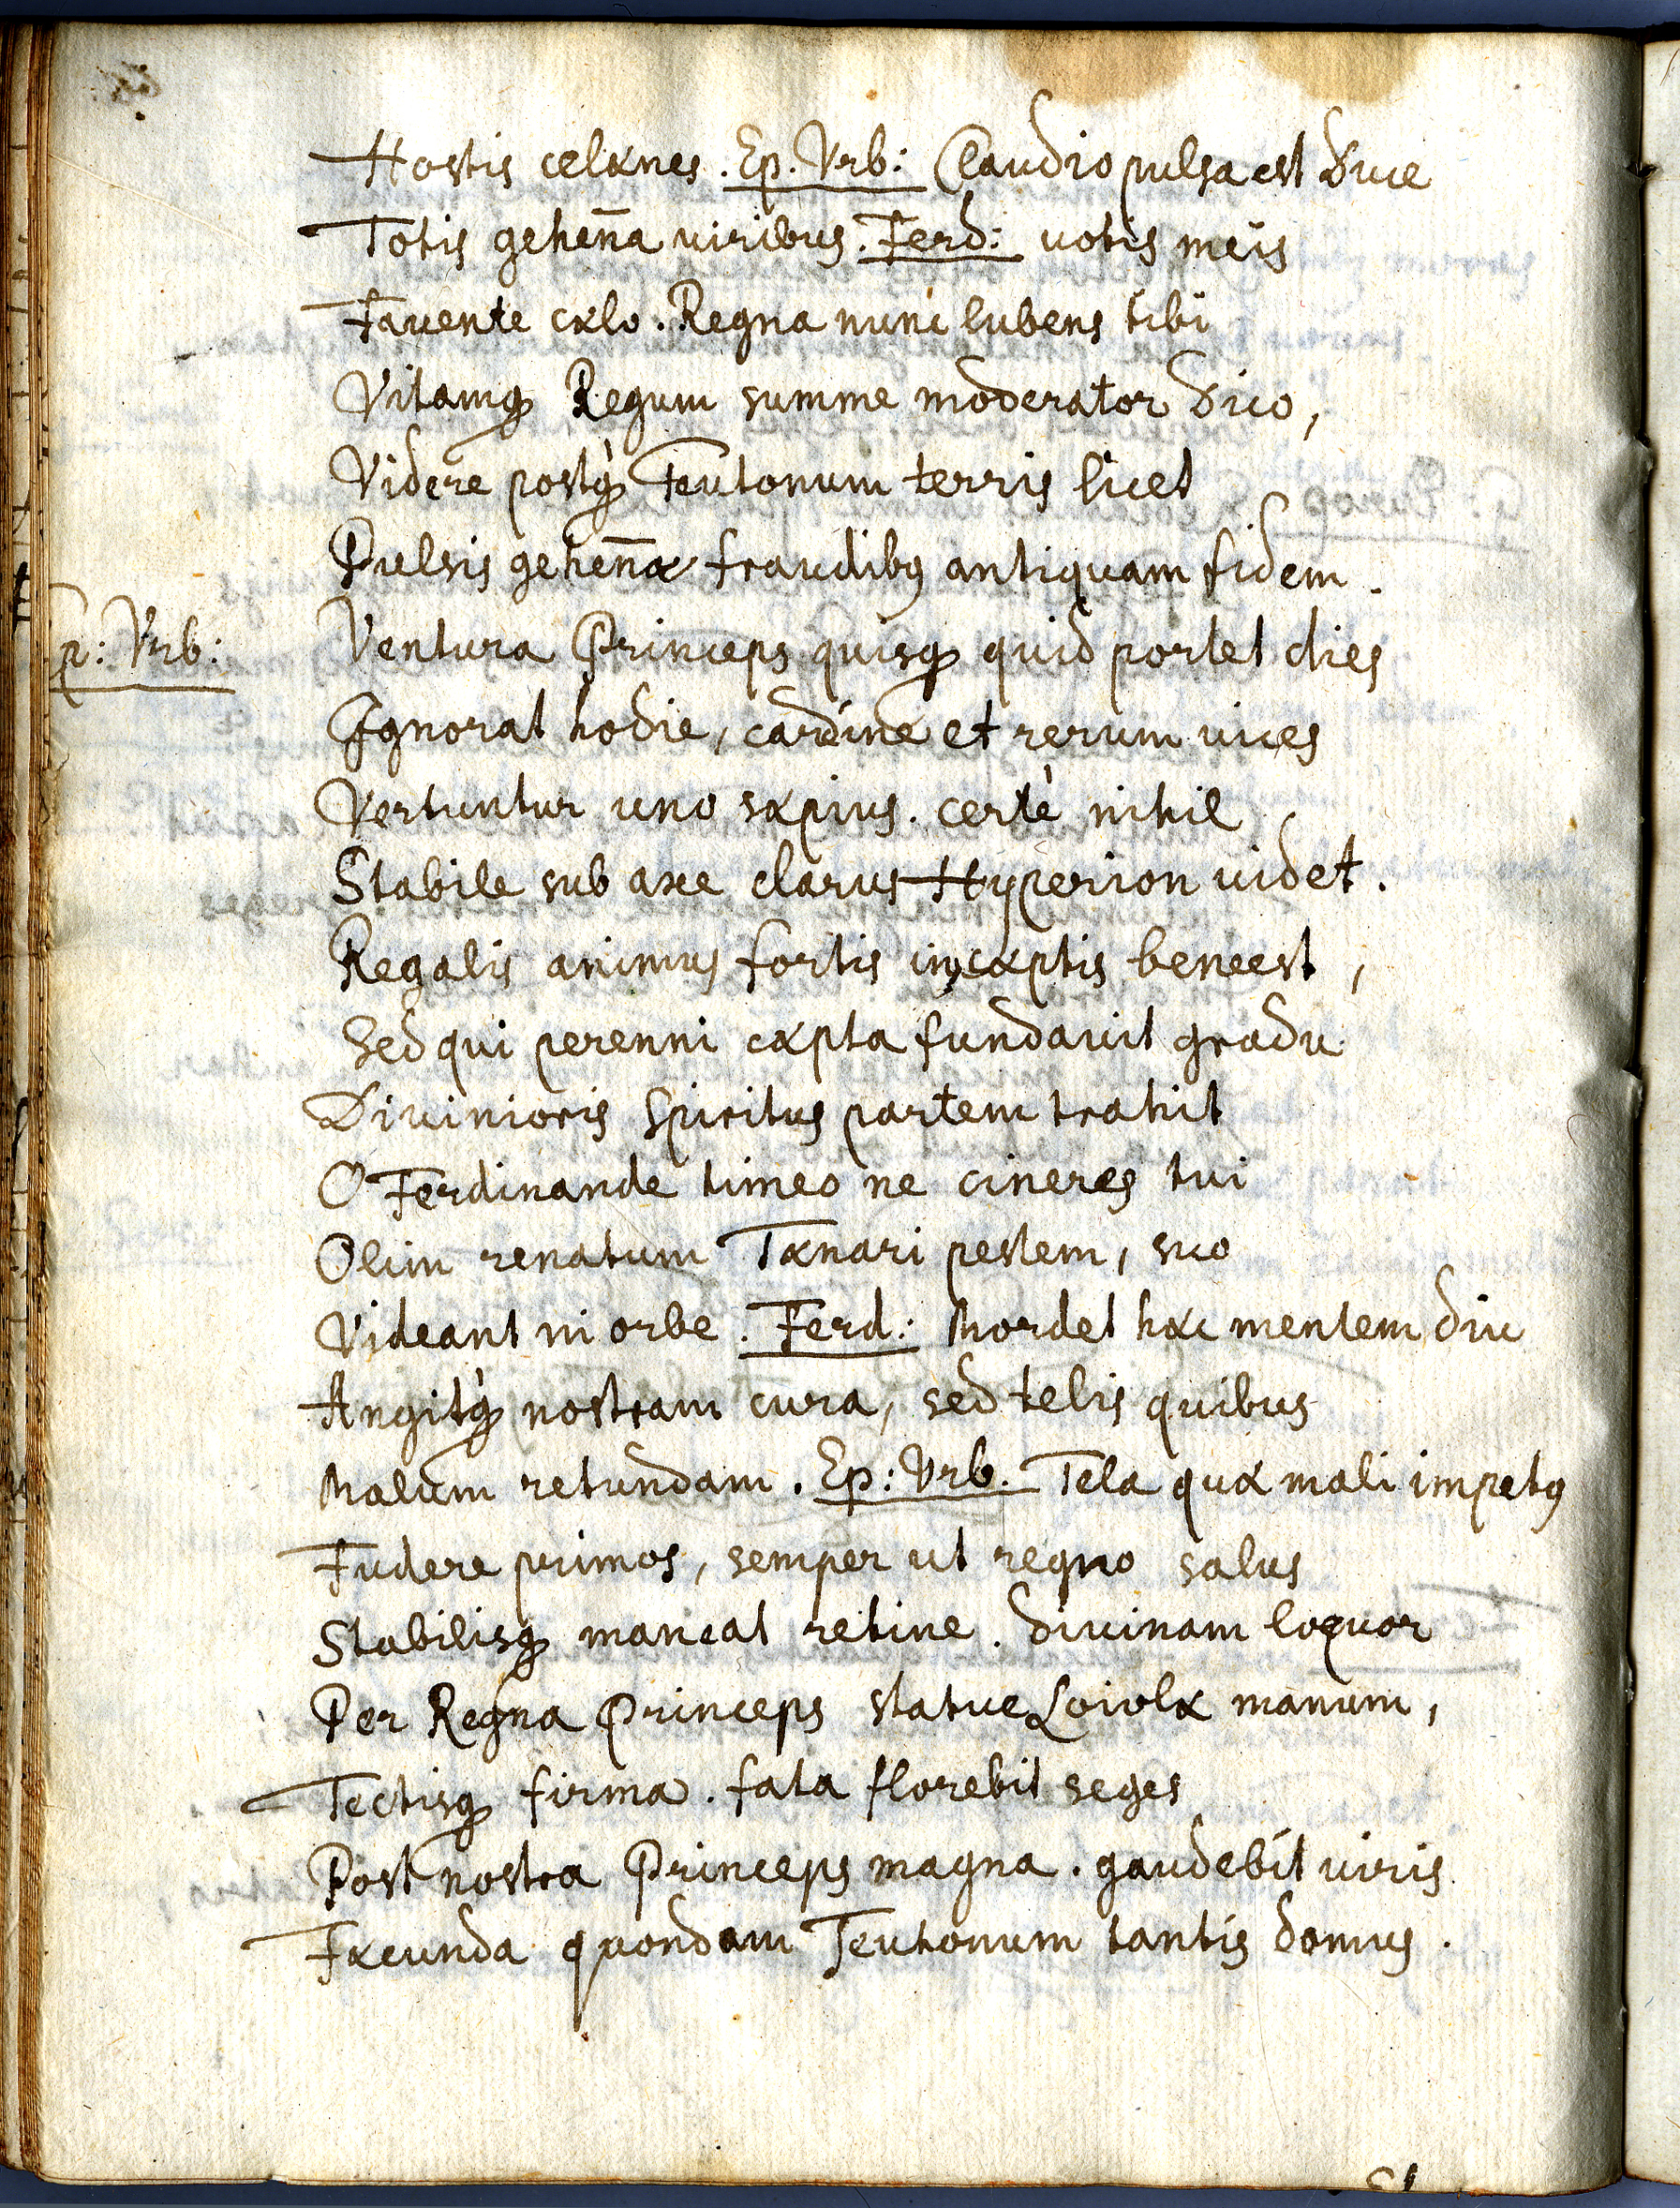 Hostis celænes. Ep. Vrb: Claudio pulsa est Duce
Totis gehen̄a uiribus. Ferd: uotis meis
Fauente cælo. Regna nunc lubens tibi
Vitamq́ Regum summe moderator dico,
Videre postq̀ Teutonum terris licet
Pulsis gehen̄æ fraudibꝰ antiquam fidem.
p: Vrb: Ventura Princeps quisq́ quid portet dies
Ignorat hodie, cardine et rerum uices
Vertuntur uno sæpius. certè nihil
Stabile sub axe clarus Hyperion uidet.
Regalis animus fortis in cæptis bene est,
Sed qui perenni cæpta fundauit gradu
Diuinioris Spiritus partem trahit
O Ferdinande timeo ne cineres tui
Olim renatum Tænari pestem, suo
Videant ni orbe. Ferd: Mordet hæc mentem diu
Angitq̀ nostram cura, sed telis quibus
Malum retundam. Ep: Vrb. Tela quæ mali impetꝰ
Fudere primos, semper ut regno salus
Stabilisq́ maneat retine. diuinam loquor
Per Regna Princeps statue Loiolæ manum,
Tectisq́ firma. fata florebit seges
Post nostra Princeps magna. gaudebit uiris
Fæcunda quondam Teutonum tantis domus.